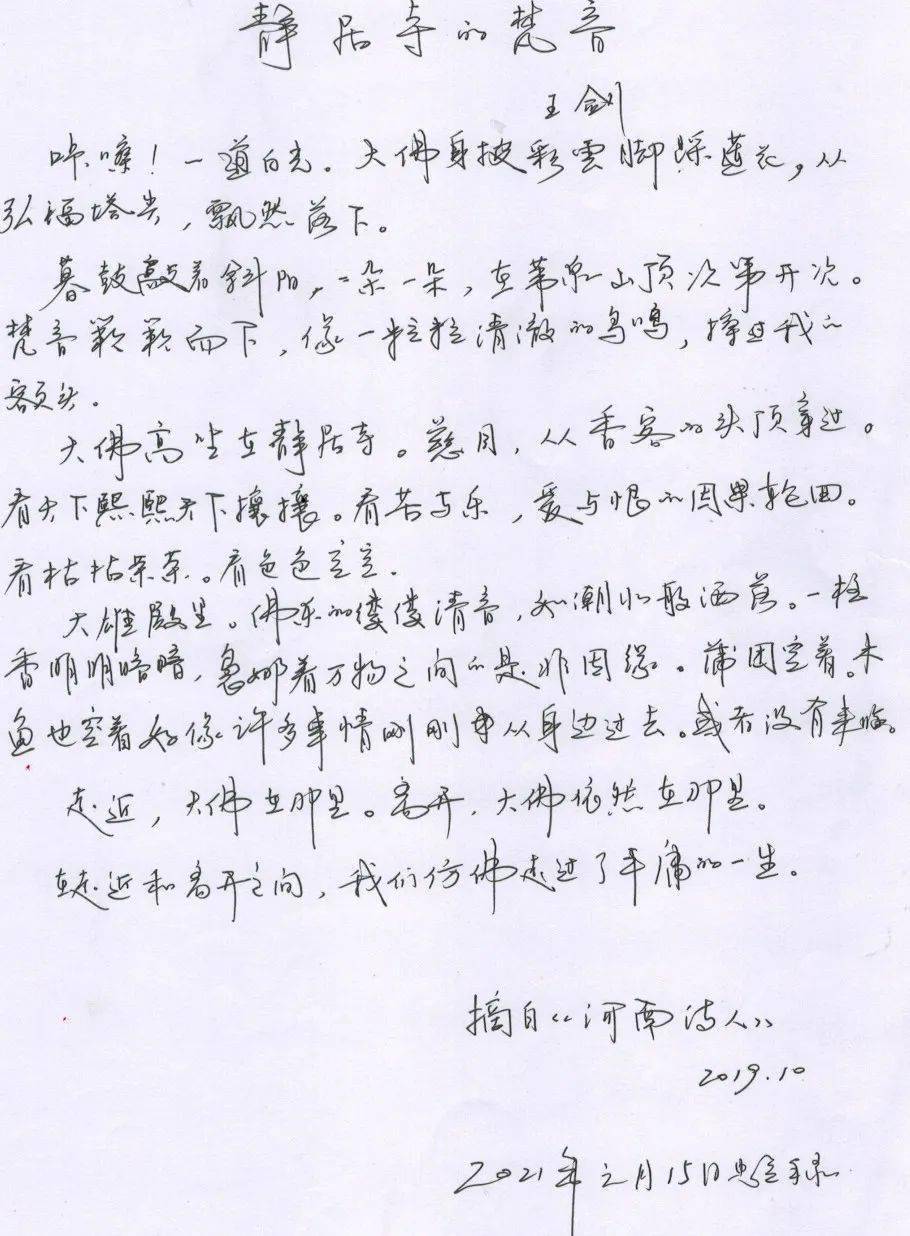 静居寺的梵音
王剑
咔嚓！一道白光。大佛身披彩雲脚踩莲花，从
弘福塔尖，飘然落下。
暮鼓敲着斜阳，一朵一朵，在苇泉山顶次第开次。
梵音簌簌而下，像一粒粒清澈的鸟鸣，擦过我的
额头。
大佛高坐在静居寺。慈目，从香客的头顶穿过。
看天下熙熙天下攘攘。看苦与乐，爱与恨的因果轮回。
看枯枯荣荣。看色色空空。
大雄殿里。佛乐的缕缕清音，如潮水般洒落。一柱
香明明暗暗，袅娜着万物之间的是非因缘。蒲团空着。木
鱼也空着好像许多事情刚刚从身边过去。或者没有来临。
走近，大佛在那里。离开，大佛依然在那里。
在走近和离开之间，我们仿佛走过了平庸的一生。
摘自《河南诗人》
2019.10
2021年元月15日 手录